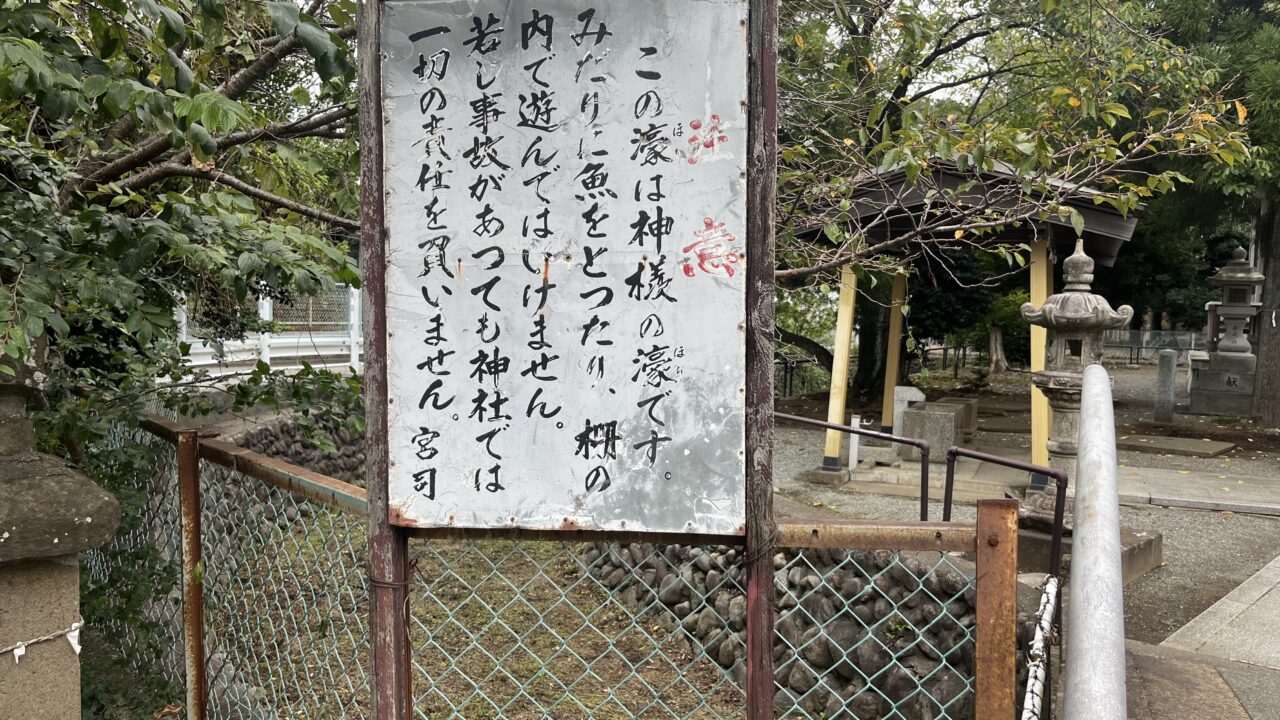 注意
この濠は神様の濠です。
ほり
ほり
みだりに魚をとつたり、棚の
内で遊んではいけません。
若し事故があつても神社では
一切の責任を負いません。宮司
献